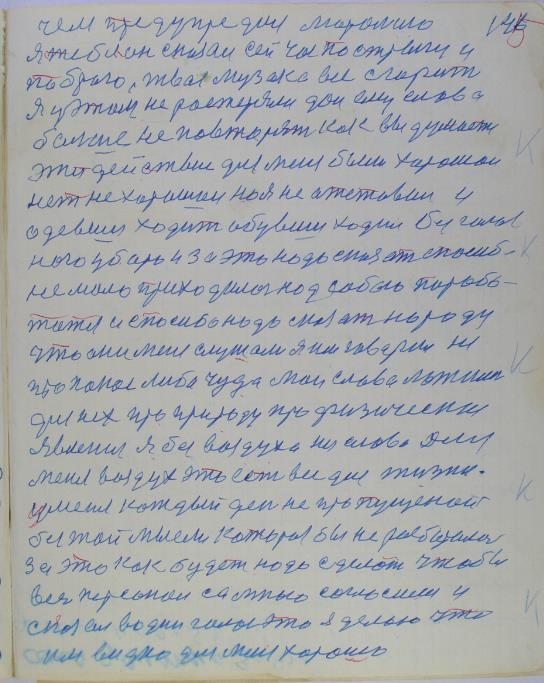 чем предупредил
145
я тебе он сказал сей час постригу и
побрею, твая музыка вся сгарит
я у этом не растерялся дал ему слова
больше не повторят как вы думаете
это действие для меня были хорошои
нет не хорошои но я не отставил и
одевши ходит обувши ходил без голов
ного убора и за это надо сказат спасиб-
немало приходилос над собою парабо-
татя и спосибо надо сказат народу
что они меня слушали я им говарил не
про какое либа чуда мои слова
для них про природу про физическия
явления я без воздуха ни слова Для
меня воздух это ест все для жизни.
у меня каждый ден не пропущеной
без той мысли которая бы не разбиралас
За это как будет надо сделат чтобы
вся персонал са мною согласилис и
сказал в один голос это я делаю что
им видно для меня хорошо